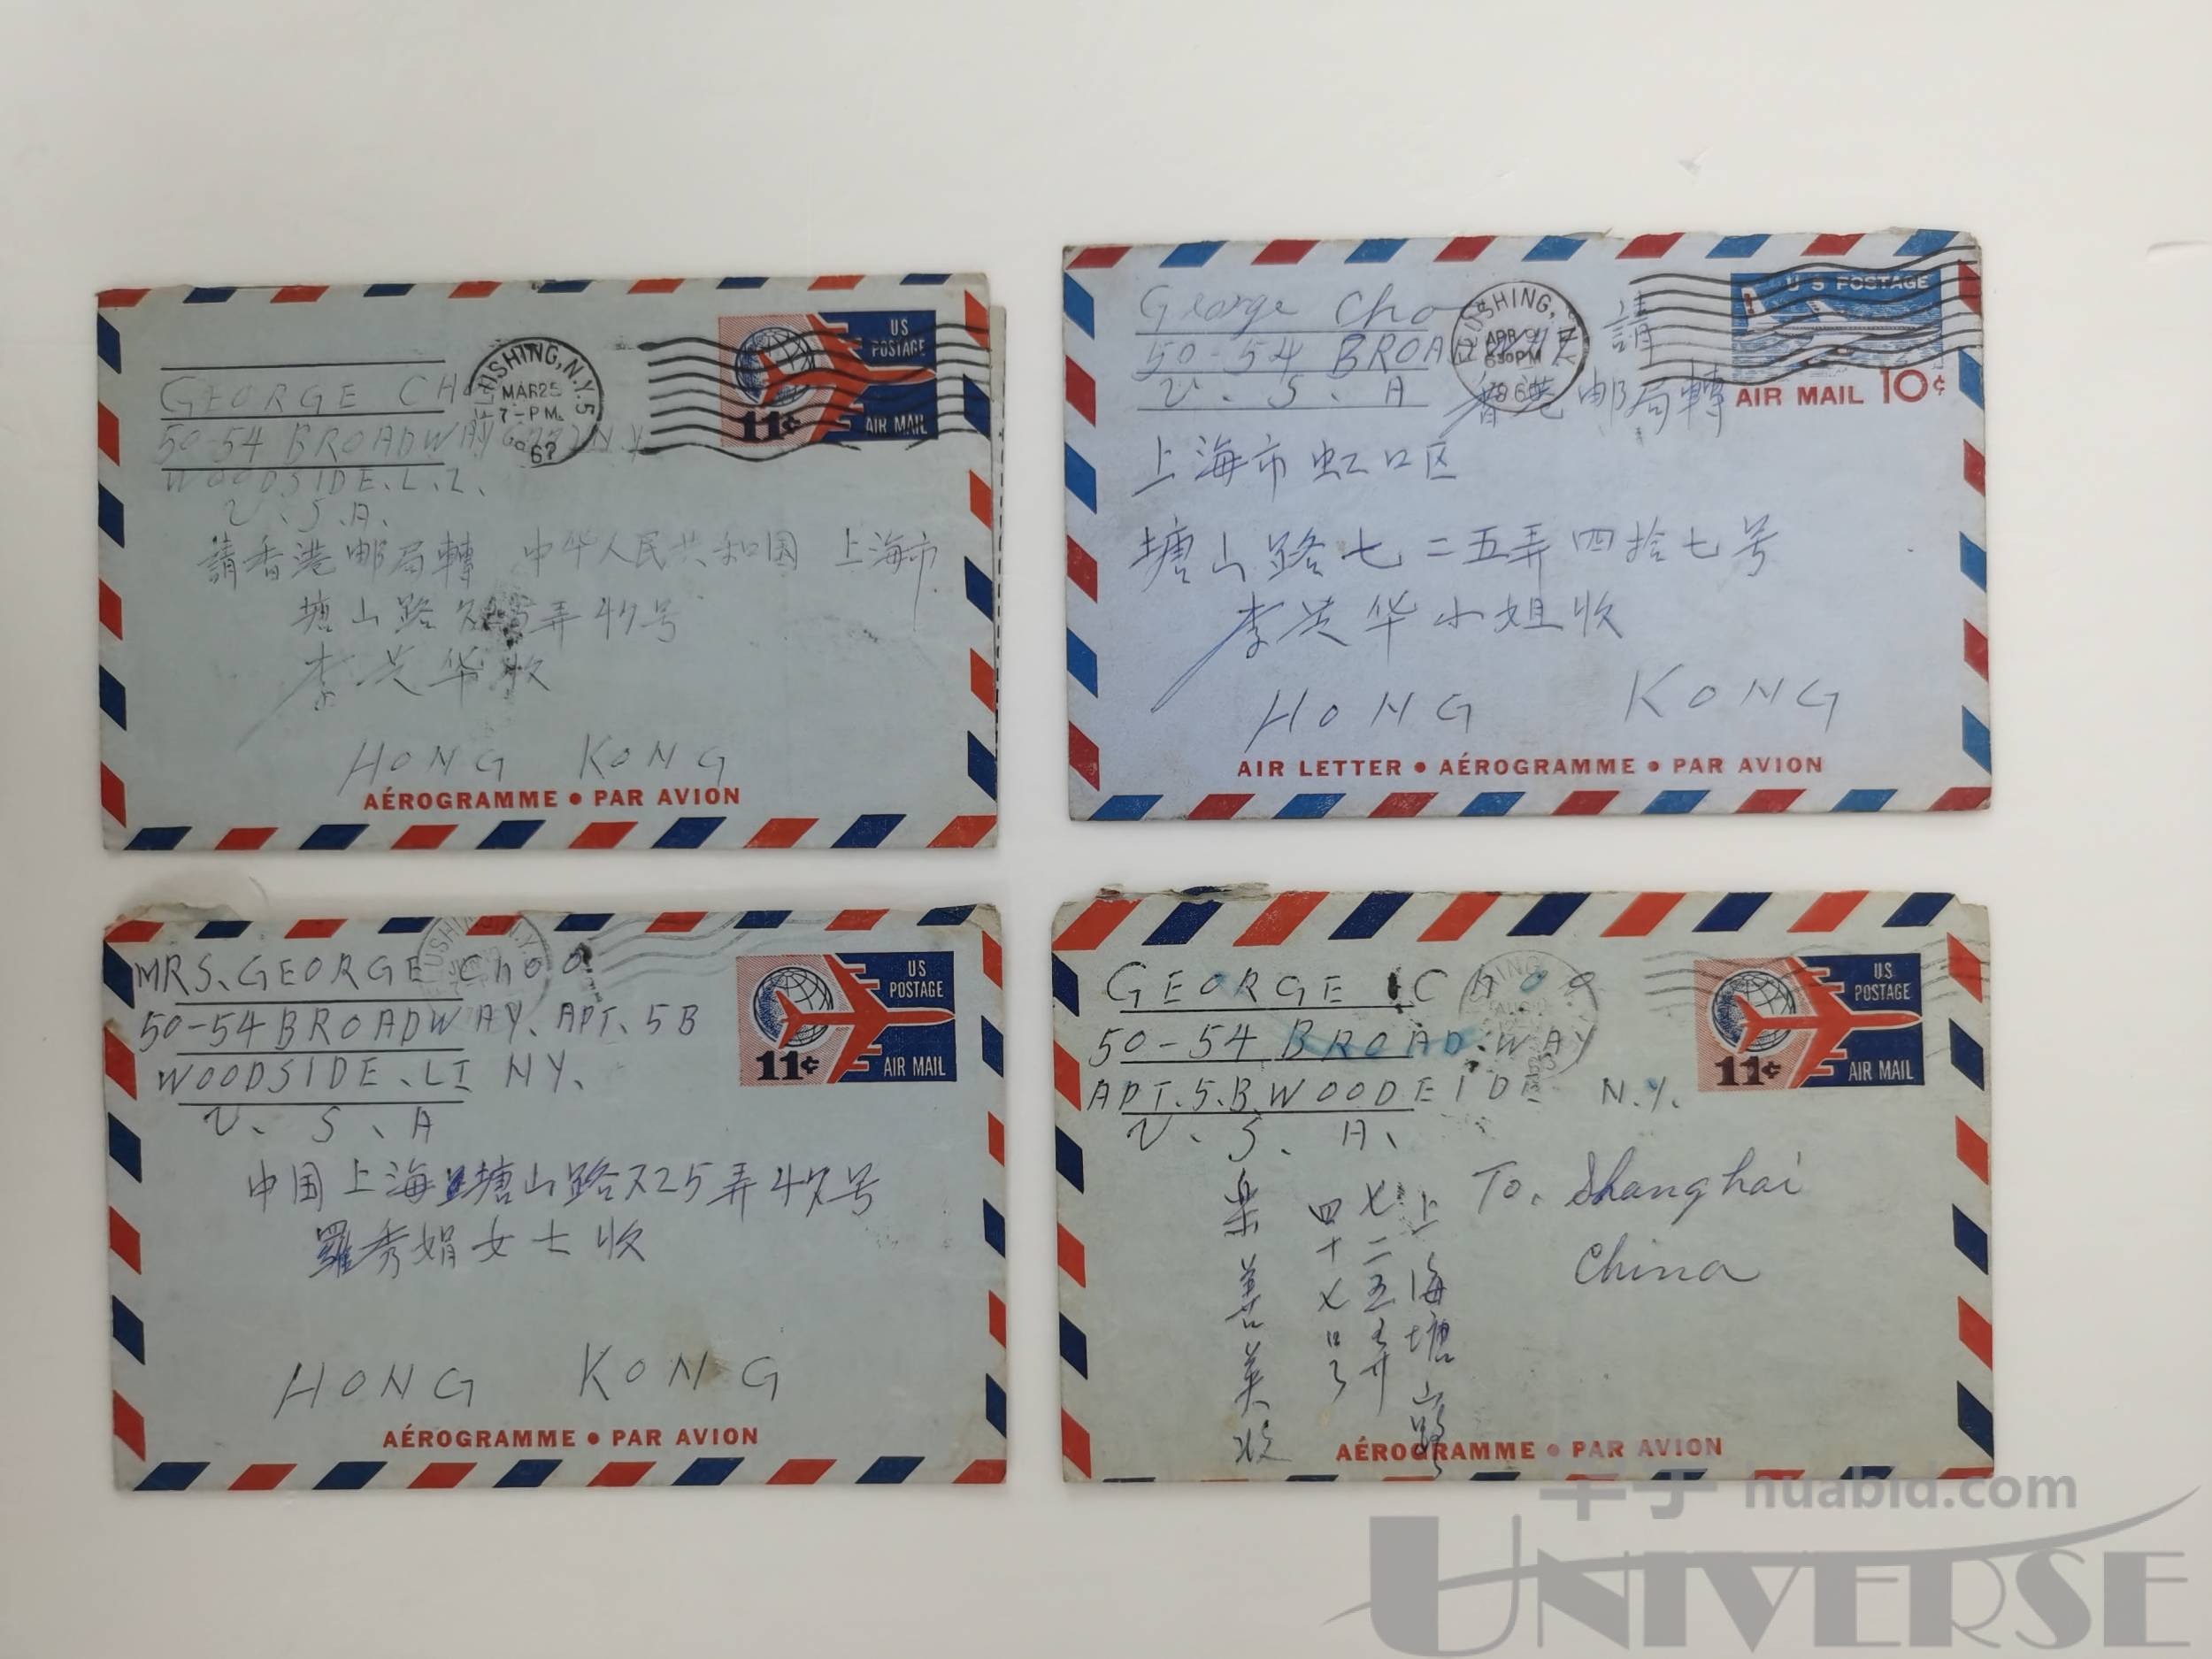 GEORGE CH
50-54 BROADWAY
WOODSIDE. L.I.
U.S.A.
FLUSHING, N.Y.5
MAR25
7-PM
US
POSTAGE
11¢
AIR MAIL
請香港邮局轉 中华人民共和国 上海市
塘山路 弄47号
李 华收
HONG KONG
AÉROGRAMME • PAR AVION
George Cho
50-54 BROADWAY
U.S.A
FLUSHING, N.Y.
APR 9
630PM
U S POSTAGE
AIR MAIL 10¢
請
香港邮局轉
上海市虹口区
塘山路七二五弄四拾七号
李 华小姐收
HONG KONG
AIR LETTER • AÉROGRAMME • PAR AVION
MRS. GEORGE Choo
50-54 BROADWAY. APT. 5B
WOODSIDE. LI NY.
U.S.A
US
POSTAGE
11¢
AIR MAIL
中国上海 塘山路725弄47号
羅秀娟女士收
HONG KONG
AÉROGRAMME • PAR AVION
GEORGE Choo
50-54 BROADWAY
APT.5.B.WOODEIDE N.Y.
U.S.A.
US
POSTAGE
11¢
AIR MAIL
To. Shanghai
China
上海塘山路
七二五弄
四十七号
善美收
AÉROGRAMME • PAR AVION
华宇 huabid.com
UNIVERSE